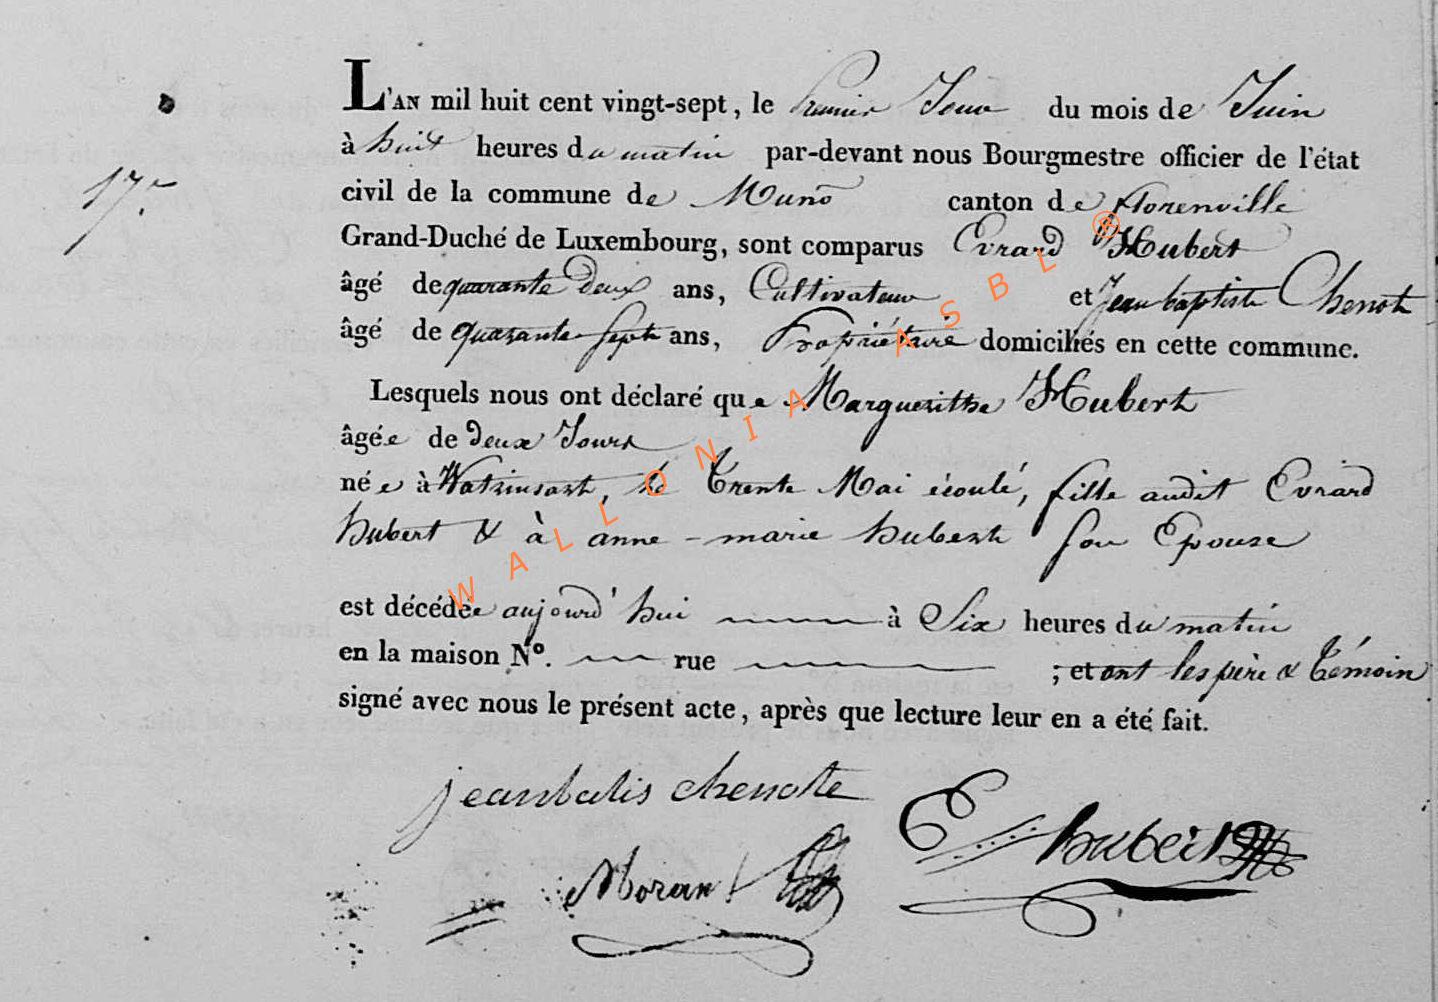 L'AN mil huit cent vingt-sept, le Premier Jour du mois de Juin
à huit heures du matin par-devant nous Bourgmestre officier de l'état
17.e
civil de la commune de Muno canton de Florenville
Grand-Duché de Luxembourg, sont comparus Evrard Hubert
âgé de quarante deux ans, Cultivateur et Jean baptiste Chenot
âgé de quarante sept ans, Propriétaire domiciliés en cette commune.
Lesquels nous ont déclaré que Margueritte Hubert
âgée de deux Jours
née à Watrinsart, le Trente Mai écoulé, fille audit Evrard
hubert & à anne-marie hubert son Epouse
est décédée aujourd'hui à Six heures du matin
en la maison N°. rue ; et ont les père & Témoin
signé avec nous le présent acte, après que lecture leur en a été fait.
jeanbatis chenote
E hubert
Moran
WALLONIA ASBL ®